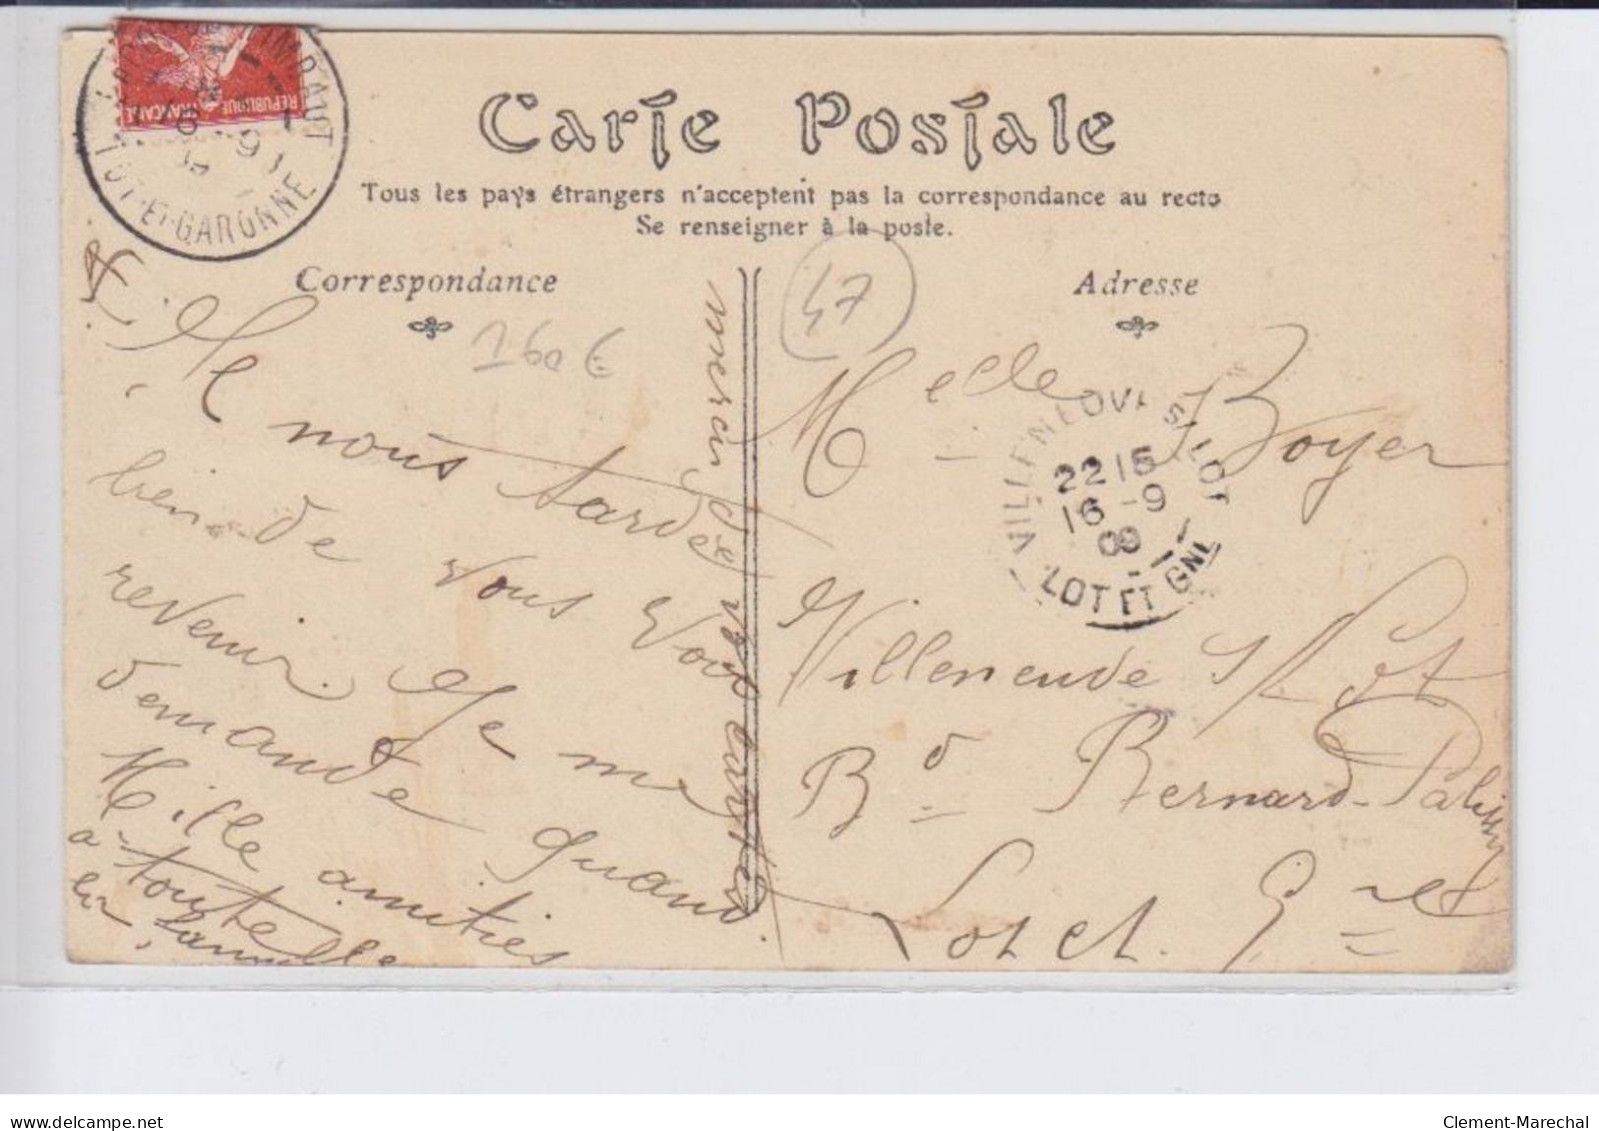 Carte Postale
Tous les pays étrangers n'acceptent pas la correspondance au recto
Se renseigner à la poste.
Correspondance
Adresse
RÉPUBLIQUE FRANÇAISE
LOT-ET-GARONNE
47
160 €
nous tarde
bien de vous voir
revenir. Je me
demande quand.
Mille amitiés
a toute
la famille
merci de vos cartes
Melle Boyer
Villeneuve s/ Lot
Bd Bernard-Palissy
Lot et Gne
VILLENEUVE S LOT
22 15
16 -9
09
LOT ET GNE
Clement-Marechal